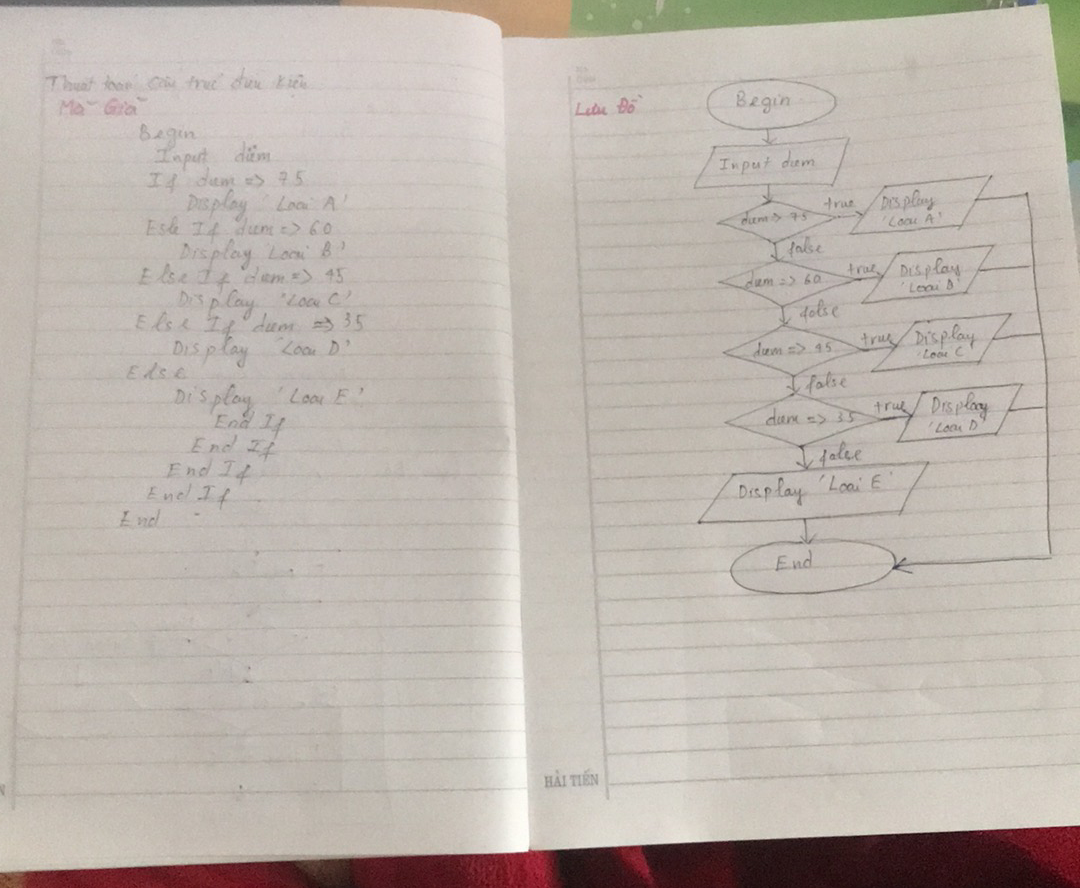 Thuật toán cấu trúc điều kiện
Mã Giả
Begin
Input điểm
If điểm => 75
Display 'Loại A'
Esle If điểm => 60
Display 'Loại B'
Else If điểm => 45
Display 'Loại C'
Else If điểm => 35
Display 'Loại D'
Else
Display 'Loại E'
End If
End If
End If
End If
End
Lưu Đồ
Begin
Input điểm
điểm => 75
true
Display
'Loại A'
false
điểm => 60
true
Display
'Loại B'
false
điểm => 45
true
Display
'Loại C'
false
điểm => 35
true
Display
'Loại D'
false
Display 'Loại E'
End
HẢI TIẾN